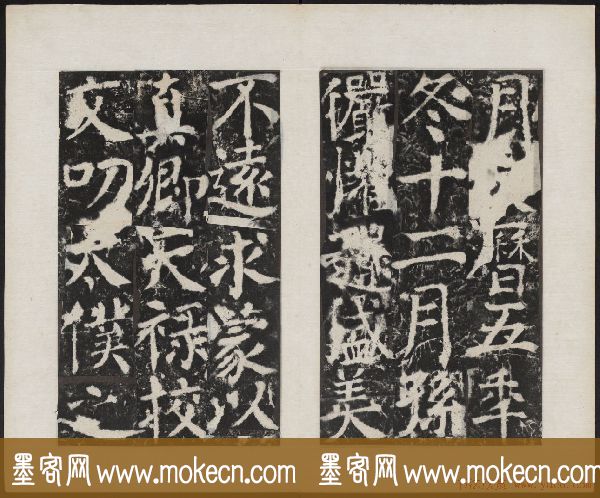 月大曆五年
冬十二月孫
儼懼遺盛美
不遠求蒙以
真卿天祿校
文叨太僕之
墨客网 www.mokecn.com 墨客网 www.mokecn.com